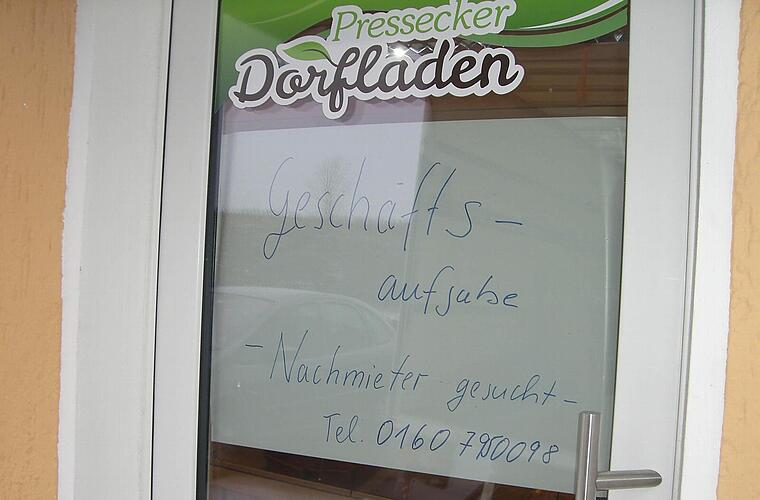 Pressecker
Dorfladen
Geschäfts-
aufgabe
- Nachmieter gesucht -
Tel. 0160 7950098